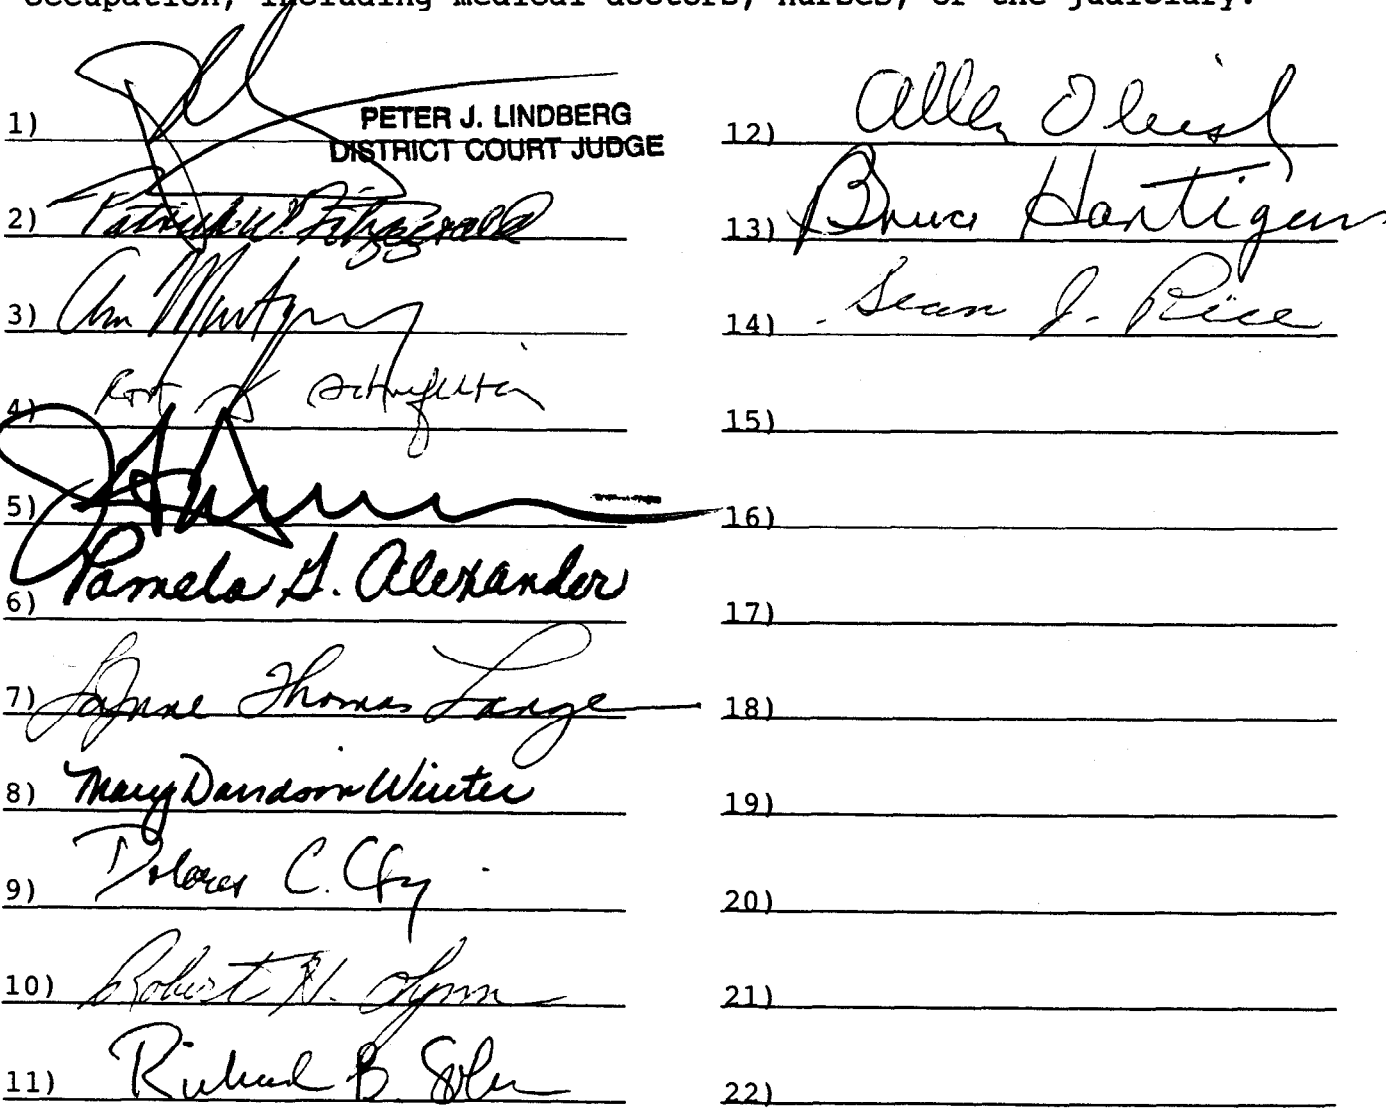 occupation, including medical doctors, nurses, or the judiciary.
1)
PETER J. LINDBERG
DISTRICT COURT JUDGE
2) Patrick W. Fitzgerald
3) Ann
4)
5)
6) Pamela G. Alexander
7) LaJune Thomas Lange
8) Mary Davidson Winter
9) Dolores C.
10) Robert H. Lynn
11) Richard B. Solum
12) Allen Oleisky
13) Bruce Hartigan
14) Sean J. Rice
15)
16)
17)
18)
19)
20)
21)
22)